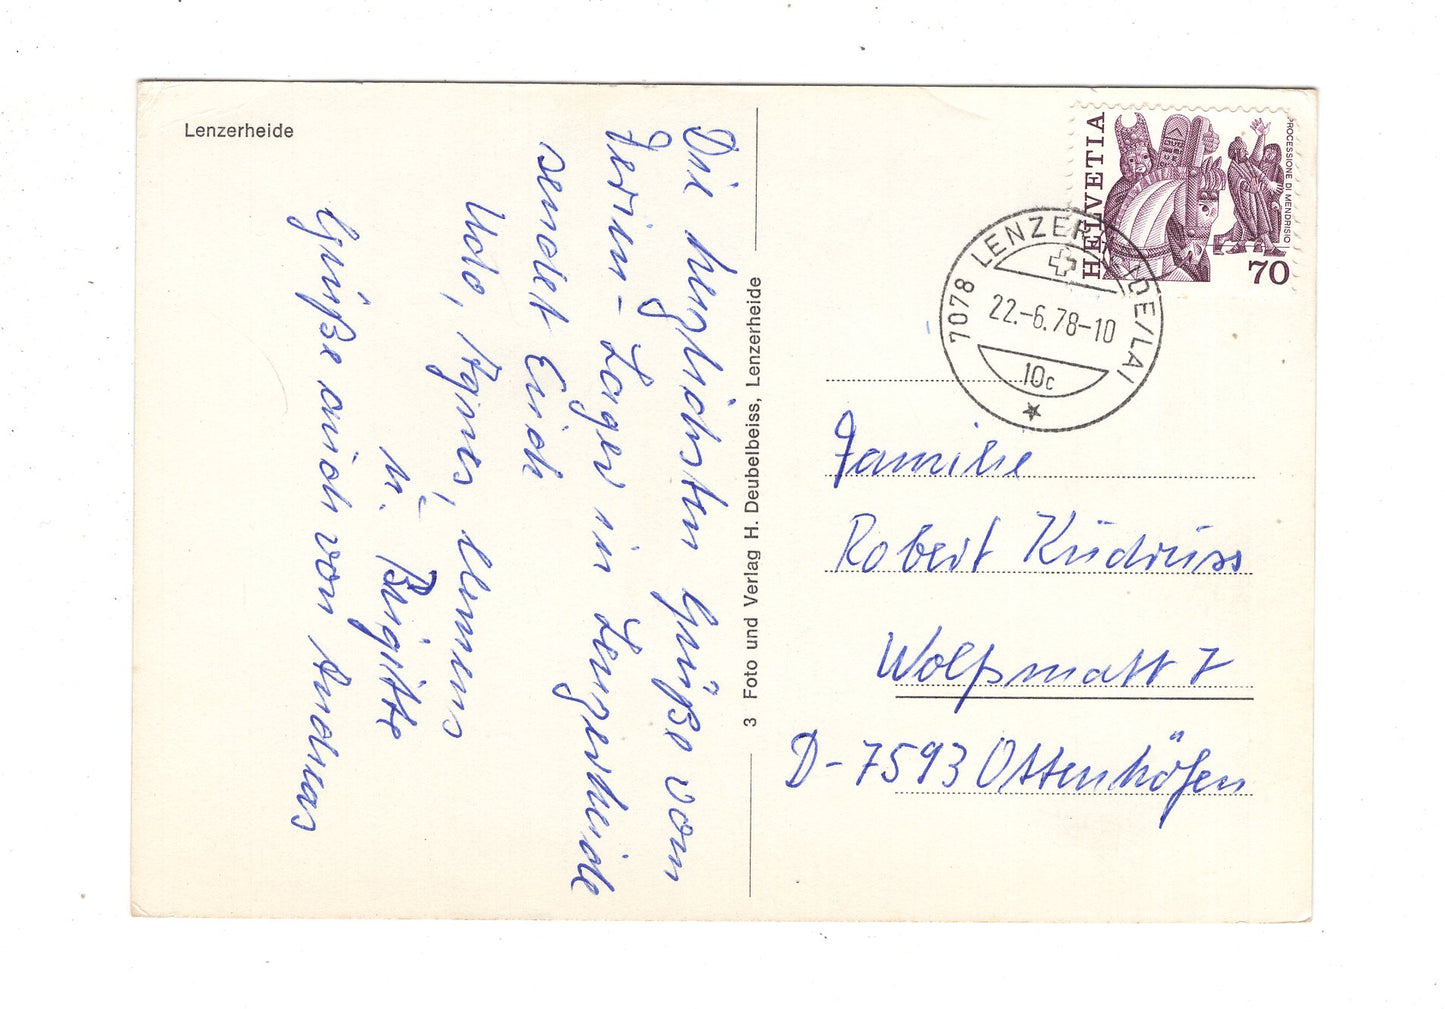 Lenzerheide
Die herzlichsten Grüße vom
Ferien-Lager in Lenzerheide
sendet Euch
Udo, Agnes, Clemens
u. Brigitte
Grüße auch von Andreas
3 Foto und Verlag H. Deubelbeiss, Lenzerheide
HELVETIA
PROCESSIONE DI MENDRISIO
70
7078 LENZERHEIDE/LAI
22.-6.78-10
10c
Familie
Robert Küdruss
Wolfsmatt 7
D-7593 Ottenhöfen